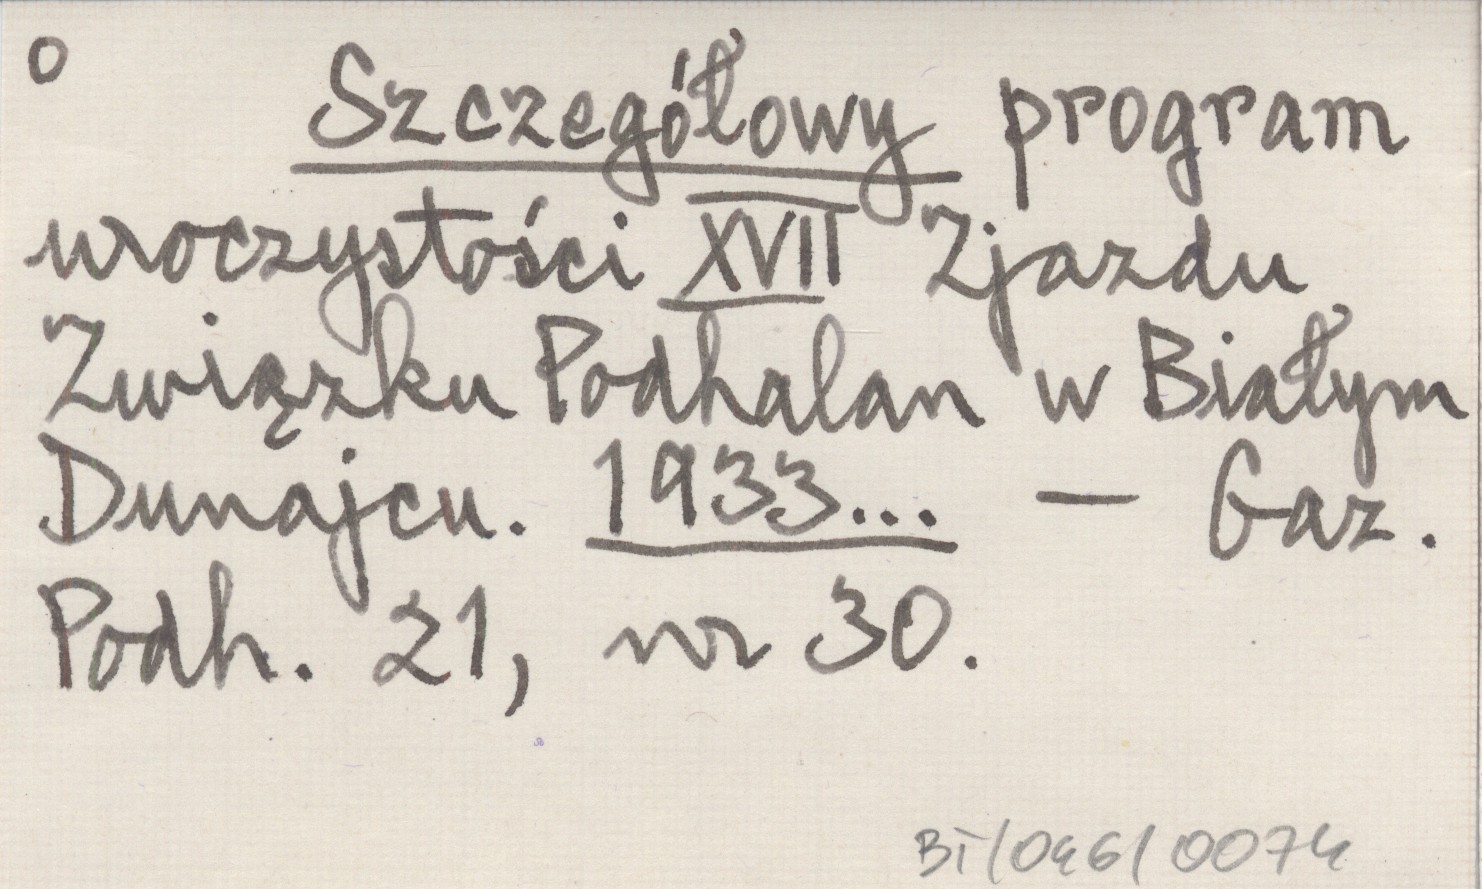 o
Szczegółowy program
uroczystości XVII Zjazdu
Związku Podhalan w Białym
Dunajcu. 1933... — Gaz.
Podh. 21, nr 30.
BT/046/0074